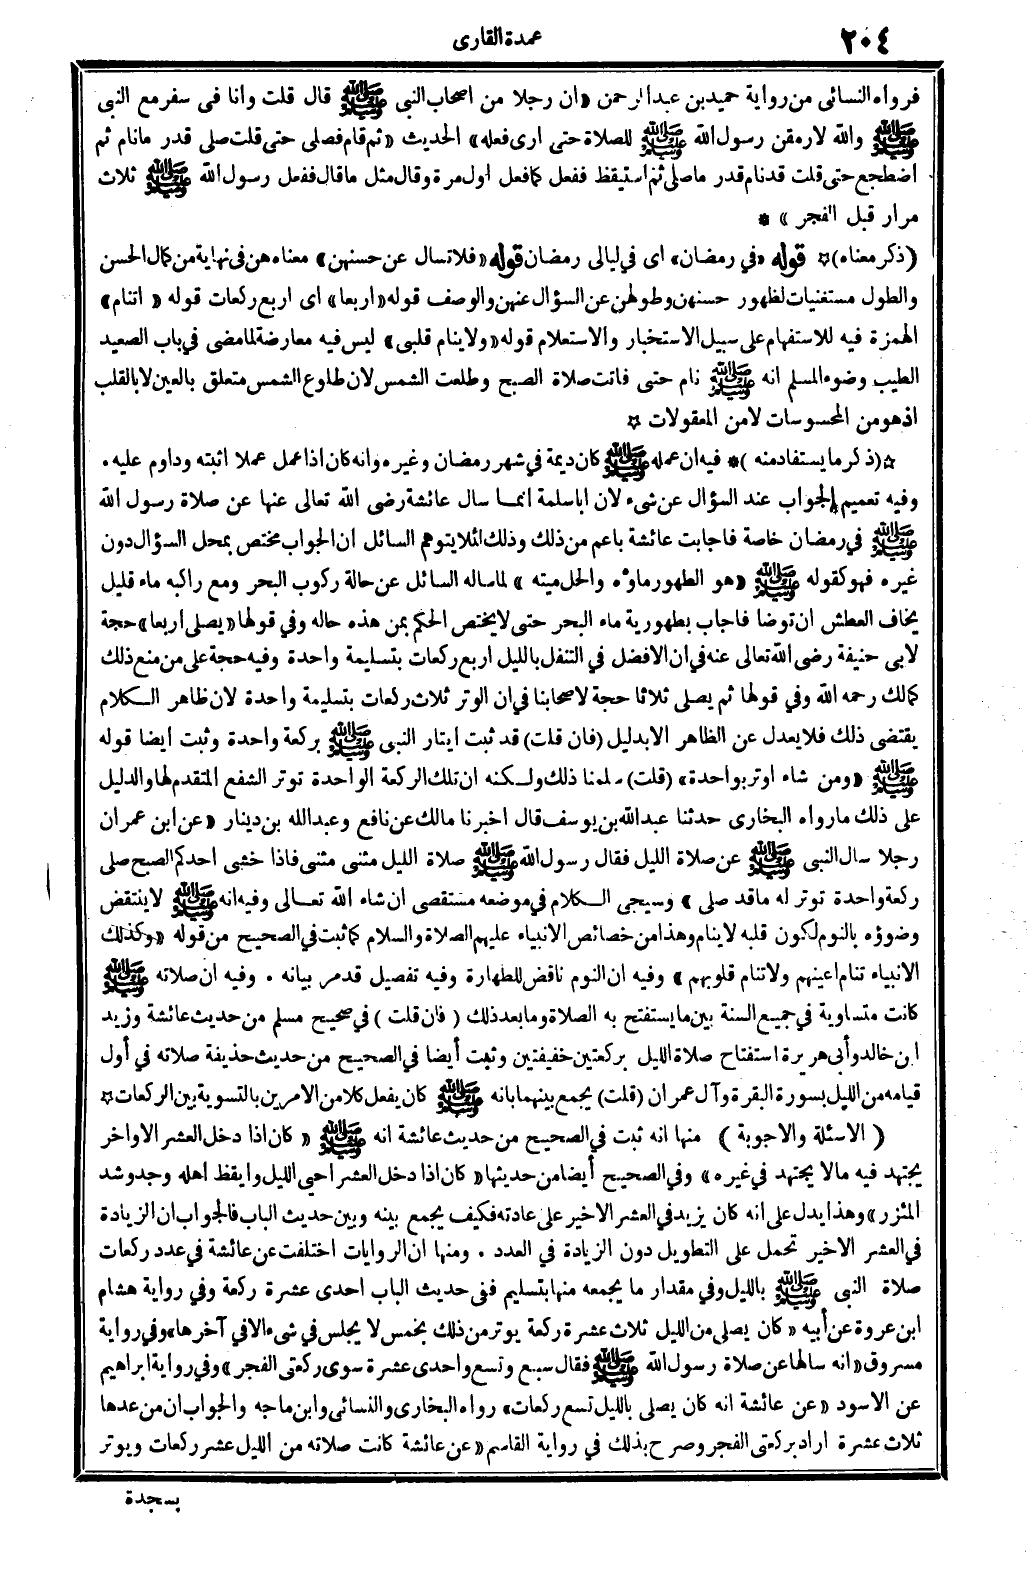 ٢٠٤
عمدة القارى
فرواه النسائى من رواية حميد بن عبد الرحمن «ان رجلا من اصحاب النبى ﷺ قال قلت وانا فى سفر مع النبى
ﷺ والله لارمقن رسول الله ﷺ للصلاة حتى ارى فعله» الحديث «ثم قام فصلى حتى قلت صلى قدر مانام ثم
اضطجع حتى قلت قدنام قدر ماصلى ثم استيقظ ففعل كمافعل اول مرة وقال مثل ماقال ففعل رسول الله ﷺ ثلاث
مرار قبل الفجر» *
(ذكر معناه) ☆ قوله «في رمضان» اى في ليالى رمضان قوله «فلاتسال عن حسنهن» معناه هن فى نهاية من كمال الحسن
والطول مستغنيات لظهور حسنهن وطولهن عن السؤال عنهن والوصف قوله «اربعا» اى اربع ركعات قوله «اتنام»
الهمزة فيه للاستفهام على سبيل الاستخبار والاستعلام قوله «ولاينام قلبى» ليس فيه معارضة لمامضى في باب الصعيد
الطيب وضوء المسلم انه ﷺ نام حتى فاتت صلاة الصبح وطلعت الشمس لان طلوع الشمس متعلق بالعين لابالقلب
اذهو من المحسوسات لامن المعقولات ☆
☆(ذكر مايستفاد منه)* فيه ان عمله ﷺ كان ديمة في شهر رمضان وغيره وانه كان اذا عمل عملا اثبته وداوم عليه.
وفيه تعميم الجواب عند السؤال عن شىء لان اباسلمة انما سال عائشة رضى الله تعالى عنها عن صلاة رسول الله
ﷺ في رمضان خاصة فاجابت عائشة باعم من ذلك وذلك لئلا يتوهم السائل ان الجواب مختص بمحل السؤال دون
غيره فهو كقوله ﷺ «هو الطهور ماؤه والحل ميته» لماساله السائل عن حالة ركوب البحر ومع راكبه ماء قليل
يخاف العطش ان توضا فاجاب بطهورية ماء البحر حتى لايختص الحكم بمن هذه حاله وفي قولها «يصلى اربعا» حجة
لابى حنيفة رضى الله تعالى عنه في ان الافضل في التنفل بالليل اربع ركعات بتسليمة واحدة وفيه حجة على من منع ذلك
كمالك رحمه الله وفي قولها ثم يصلى ثلاثا حجة لاصحابنا في ان الوتر ثلاث ركعات بتسليمة واحدة لان ظاهر الكلام
يقتضى ذلك فلا يعدل عن الظاهر الابدليل (فان قلت) قد ثبت ايتار النبى ﷺ بركعة واحدة وثبت ايضا قوله
ﷺ «ومن شاء اوتر بواحدة» (قلت) سلمنا ذلك ولكنه ان تلك الركعة الواحدة توتر الشفع المتقدم لها والدليل
على ذلك مارواه البخارى حدثنا عبدالله بن يوسف قال اخبرنا مالك عن نافع وعبدالله بن دينار «عن ابن عمران
رجلا سال النبى ﷺ عن صلاة الليل فقال رسول الله ﷺ صلاة الليل مثنى مثنى فاذا خشى احدكم الصبح صلى
ركعة واحدة توتر له ماقد صلى» وسيجى الكلام في موضعه مستقصى ان شاء الله تعالى وفيه انه ﷺ لاينتقض
وضوؤه بالنوم لكون قلبه لاينام وهذا من خصائص الانبياء عليهم الصلاة والسلام كماثبت في الصحيح من قوله «وكذلك
الانبياء تنام اعينهم ولاتنام قلوبهم» وفيه ان النوم ناقض للطهارة وفيه تفصيل قدمر بيانه . وفيه ان صلاته ﷺ
كانت متساوية في جميع السنة بين مايستفتح به الصلاة ومابعد ذلك (فان قلت) في صحيح مسلم من حديث عائشة وزيد
ابن خالد وأبى هريرة استفتاح صلاة الليل بركعتين خفيفتين وثبت أيضا في الصحيح من حديث حذيفة صلاته في أول
قيامه من الليل بسورة البقرة وآل عمران (قلت) يجمع بينهما بانه ﷺ كان يفعل كلا من الامرين بالتسوية بين الركعات ☆
(الاسئلة والاجوبة) منها انه ثبت في الصحيح من حديث عائشة انه ﷺ «كان اذا دخل العشر الاواخر
يجتهد فيه مالا يجتهد في غيره» وفي الصحيح أيضا من حديثها «كان اذا دخل العشر احيى الليل وايقظ اهله وجد وشد
المئزر» وهذا يدل على انه كان يزيد في العشر الاخير على عادته فكيف يجمع بينه وبين حديث الباب فالجواب ان الزيادة
في العشر الاخير تحمل على التطويل دون الزيادة في العدد . ومنها ان الروايات اختلفت عن عائشة في عدد ركعات
صلاة النبى ﷺ بالليل وفي مقدار ما يجمعه منها بتسليم ففى حديث الباب احدى عشرة ركعة وفي رواية هشام
ابن عروة عن أبيه «كان يصلى من الليل ثلاث عشرة ركعة يوتر من ذلك بخمس لا يجلس في شىء الافي آخرها» وفي رواية
مسروق «انه سالها عن صلاة رسول الله ﷺ فقال سبع وتسع واحدى عشرة سوى ركعتى الفجر» وفي رواية ابراهيم
عن الاسود «عن عائشة انه كان يصلى بالليل تسع ركعات» رواه البخارى والنسائى وابن ماجه والجواب ان من عدها
ثلاث عشرة اراد بركعتى الفجر وصرح بذلك في رواية القاسم «عن عائشة كانت صلاته من الليل عشر ركعات ويوتر
بسجدة